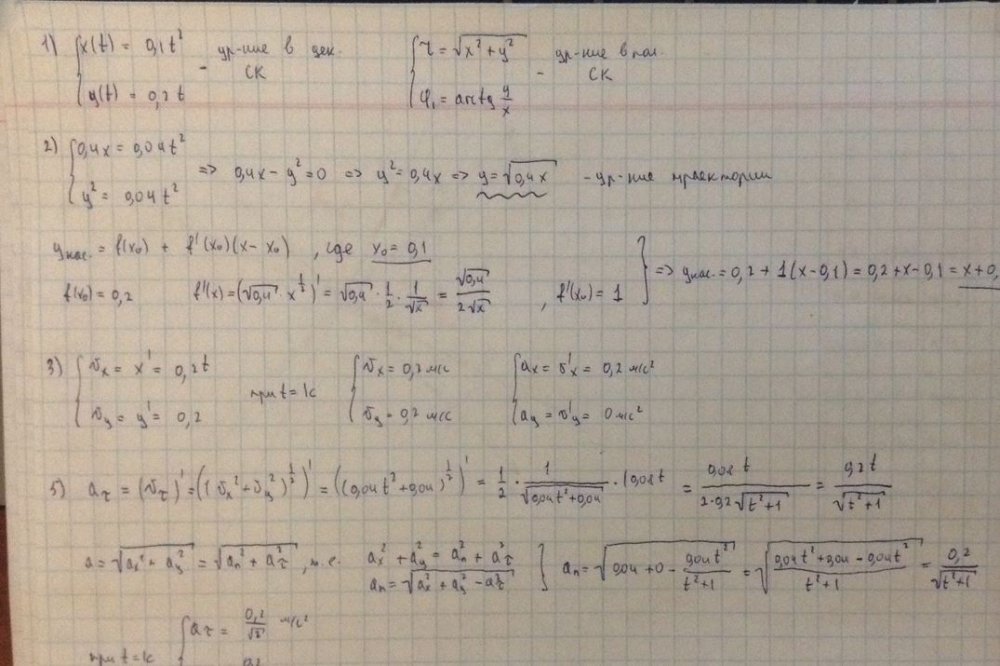 1) { x(t) = 0,1t² y(t) = 0,2t - ур-ние в дек. СК { r = √(x² + y²) φ₁ = arctg y/x - ур-ние в пол. СК
2) { 0,4x = 0,04t² y² = 0,04t² => 0,4x - y² = 0 => y² = 0,4x => y = √(0,4x) - ур-ние траектории
yкас. = f(x₀) + f'(x₀)(x - x₀), где x₀ = 0,1
f(x₀) = 0,2 f'(x) = (√0,4 · x^(1/2))' = √0,4 · 1/2 · 1/√x = √0,4/(2√x), f'(x₀) = 1 } => yкас. = 0,2 + 1(x - 0,1) = 0,2 + x - 0,1 = x + 0,
3) { vx = x' = 0,2t vy = y' = 0,2 при t = 1c { vx = 0,2 м/с vy = 0,2 м/с { ax = v'x = 0,2 м/с² ay = v'y = 0 м/с²
5) aτ = (vτ)' = ((vx² + vy²)^(1/2))' = ((0,04t² + 0,04)^(1/2))' = 1/2 · 1/√(0,04t² + 0,04) · 0,08t = 0,08t/(2·0,2√(t²+1)) = 0,2t/√(t²+1)
a = √(ax² + ay²) = √(an² + aτ²), т.е. ax² + ay² = an² + aτ² an = √(ax² + ay² - aτ²) } an = √(0,04 + 0 - 0,04t²/(t²+1)) = √((0,04t² + 0,04 - 0,04t²)/(t²+1)) = 0,2/√(t²+1)
при t = 1c { aτ = 0,2/√2 м/с²